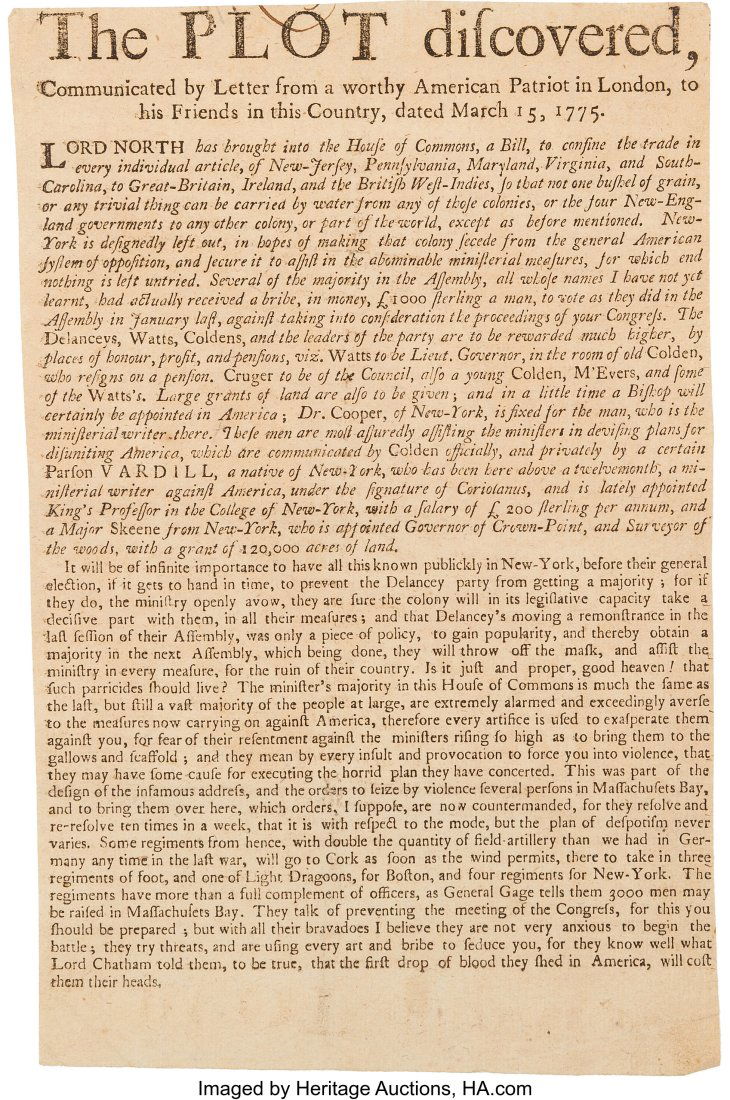 The PLOT diſcovered,
Communicated by Letter from a worthy American Patriot in London, to
his Friends in this Country, dated March 15, 1775.
LORD NORTH has brought into the Houſe of Commons, a Bill, to confine the trade in
every individual article, of New-Jerſey, Pennſylvania, Maryland, Virginia, and South-
Carolina, to Great-Britain, Ireland, and the Britiſh Weſt-Indies, ſo that not one buſhel of grain,
or any trivial thing can be carried by water from any of thoſe colonies, or the four New-Eng-
land governments to any other colony, or part of the world, except as before mentioned. New-
York is deſignedly left out, in hopes of making that colony ſecede from the general American
ſyſtem of oppoſition, and ſecure it to aſſiſt in the abominable miniſterial meaſures, for which end
nothing is left untried. Several of the majority in the Aſſembly, all whoſe names I have not yet
learnt, had actually received a bribe, in money, £1000 ſterling a man, to vote as they did in the
Aſſembly in January laſt, againſt taking into conſideration the proceedings of your Congreſs. The
Delanceys, Watts, Coldens, and the leaders of the party are to be rewarded much higher, by
places of honour, profit, and penſions, viz. Watts to be Lieut. Governor, in the room of old Colden,
who reſigns on a penſion. Cruger to be of the Council, alſo a young Colden, M'Evers, and ſome
of the Watts's. Large grants of land are alſo to be given; and in a little time a Biſhop will
certainly be appointed in America; Dr. Cooper, of New-York, is fixed for the man, who is the
miniſterial writer there. Theſe men are moſt aſſuredly aſſiſting the miniſters in deviſing plans for
diſuniting America, which are communicated by Colden officially, and privately by a certain
Parſon VARDILL, a native of New-York, who has been here above a twelvemonth, a mi-
niſterial writer againſt America, under the ſignature of Coriolanus, and is lately appointed
King's Profeſſor in the College of New-York, with a ſalary of £ 200 ſterling per annum, and
a Major Skeene from New-York, who is appointed Governor of Crown-Point, and Surveyor of
the woods, with a grant of 120,000 acres of land.
It will be of infinite importance to have all this known publickly in New-York, before their general
election, if it gets to hand in time, to prevent the Delancey party from getting a majority; for if
they do, the miniſtry openly avow, they are ſure the colony will in its legiſlative capacity take a
deciſive part with them, in all their meaſures; and that Delancey's moving a remonſtrance in the
laſt ſeſſion of their Aſſembly, was only a piece of policy, to gain popularity, and thereby obtain a
majority in the next Aſſembly, which being done, they will throw off the maſk, and aſſiſt the
miniſtry in every meaſure, for the ruin of their country. Is it juſt and proper, good heaven! that
ſuch parricides ſhould live? The miniſter's majority in this Houſe of Commons is much the ſame as
the laſt, but ſtill a vaſt majority of the people at large, are extremely alarmed and exceedingly averſe
to the meaſures now carrying on againſt America, therefore every artifice is uſed to exaſperate them
againſt you, for fear of their reſentment againſt the miniſters riſing ſo high as to bring them to the
gallows and ſcaffold; and they mean by every inſult and provocation to force you into violence, that
they may have ſome cauſe for executing the horrid plan they have concerted. This was part of the
deſign of the infamous addreſs, and the orders to ſeize by violence ſeveral perſons in Maſſachuſets Bay,
and to bring them over here, which orders, I ſuppoſe, are now countermanded, for they reſolve and
re-reſolve ten times in a week, that it is with reſpect to the mode, but the plan of deſpotiſm never
varies. Some regiments from hence, with double the quantity of field artillery than we had in Ger-
many any time in the laſt war, will go to Cork as ſoon as the wind permits, there to take in three
regiments of foot, and one of Light Dragoons, for Boſton, and four regiments for New-York. The
regiments have more than a full complement of officers, as General Gage tells them 3000 men may
be raiſed in Maſſachuſets Bay. They talk of preventing the meeting of the Congreſs, for this you
ſhould be prepared; but with all their bravadoes I believe they are not very anxious to begin the
battle; they try threats, and are uſing every art and bribe to ſeduce you, for they know well what
Lord Chatham told them, to be true, that the firſt drop of blood they ſhed in America, will coſt
them their heads.
Imaged by Heritage Auctions, HA.com